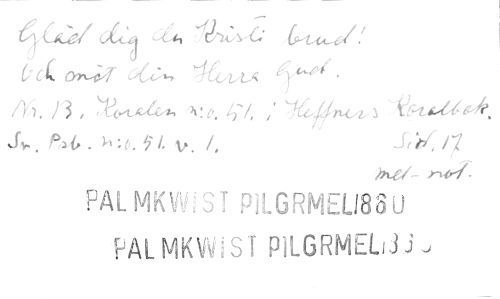 Gläd dig du Kristi brud!
Och möt din Herra Gud.
Nr. 13. Koralen n:o. 51. i Heffners Koralbok.
Sv. Psb. n:o. 51. v. 1. Sid. 17
mel-not.
PALMKWIST PILGRMEL1860
PALMKWIST PILGRMEL1860